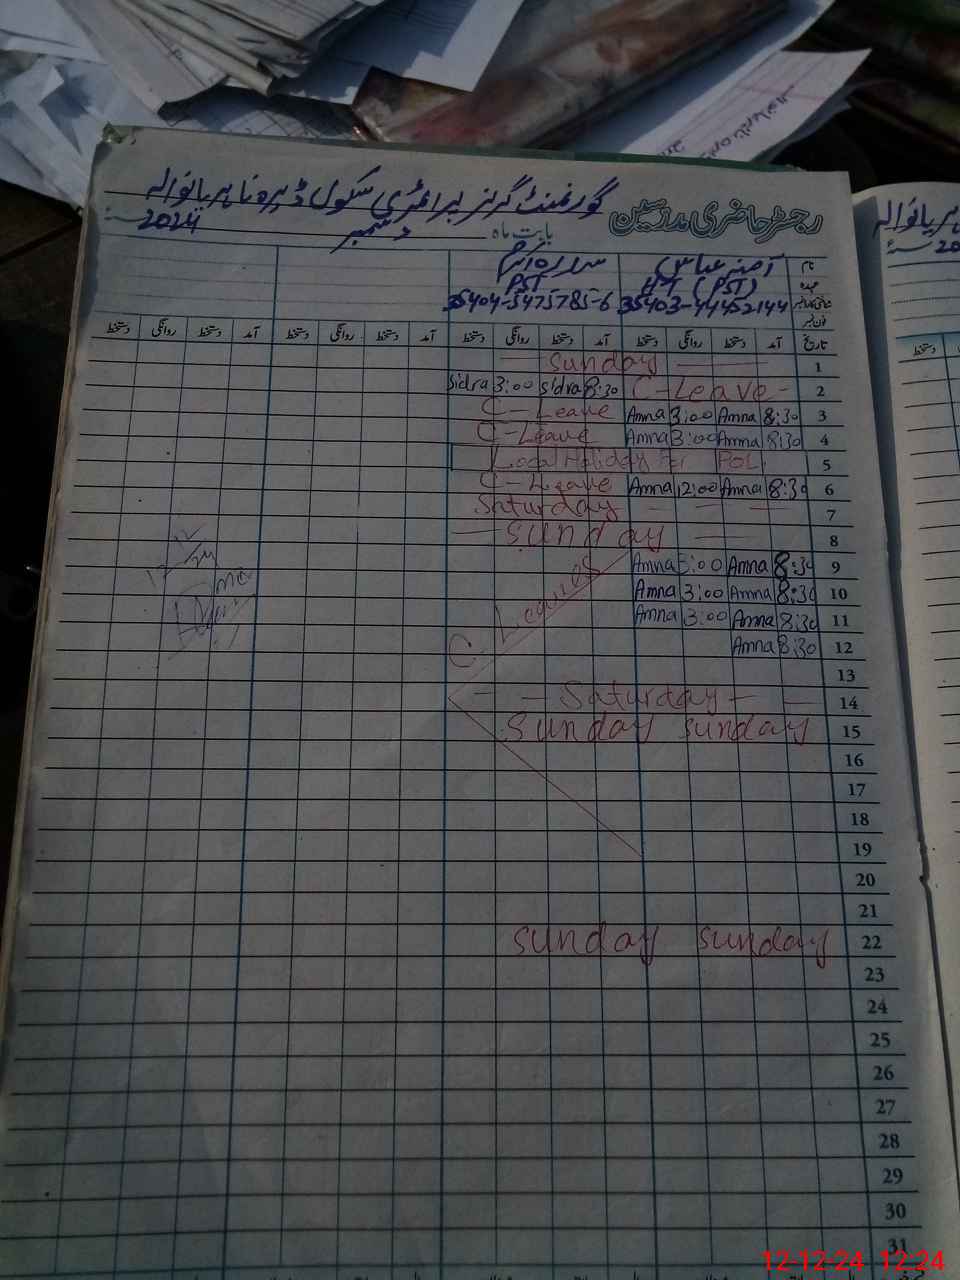 رجسٹر حاضری مدرسین گورنمنٹ گرلز پرائمری سکول ڈیرہ
بابت ماہ دسمبر 2024
نام آمنہ عباس
عہدہ HT (PST) PST
35403-44452144 35404-5475785-6
تاریخ آمد دستخط روانگی دستخط آمد دستخط روانگی دستخط آمد دستخط روانگی دستخط آمد دستخط روانگی دستخط
1 Sunday
2 C-Leave Sidra 3:00 Sidra 8:30
3 C-Leave Amna 3:00 Amna 8:30
4 C-Leave Amna 3:00 Amna 8:30
5 Local Holiday For POL
6 C-Leave Amna 12:00 Amna 8:30
7 Saturday
8 Sunday
9 Amna 3:00 Amna 8:30
10 Amna 3:00 Amna 8:30
11 Amna 3:00 Amna 8:30
12 Amna 8:30
C-Leaves
13
14 Saturday
15 Sunday Sunday
16
17
18
19
20
21
22 Sunday Sunday
23
24
25
26
27
28
29
30
31
12-12-24 12:24